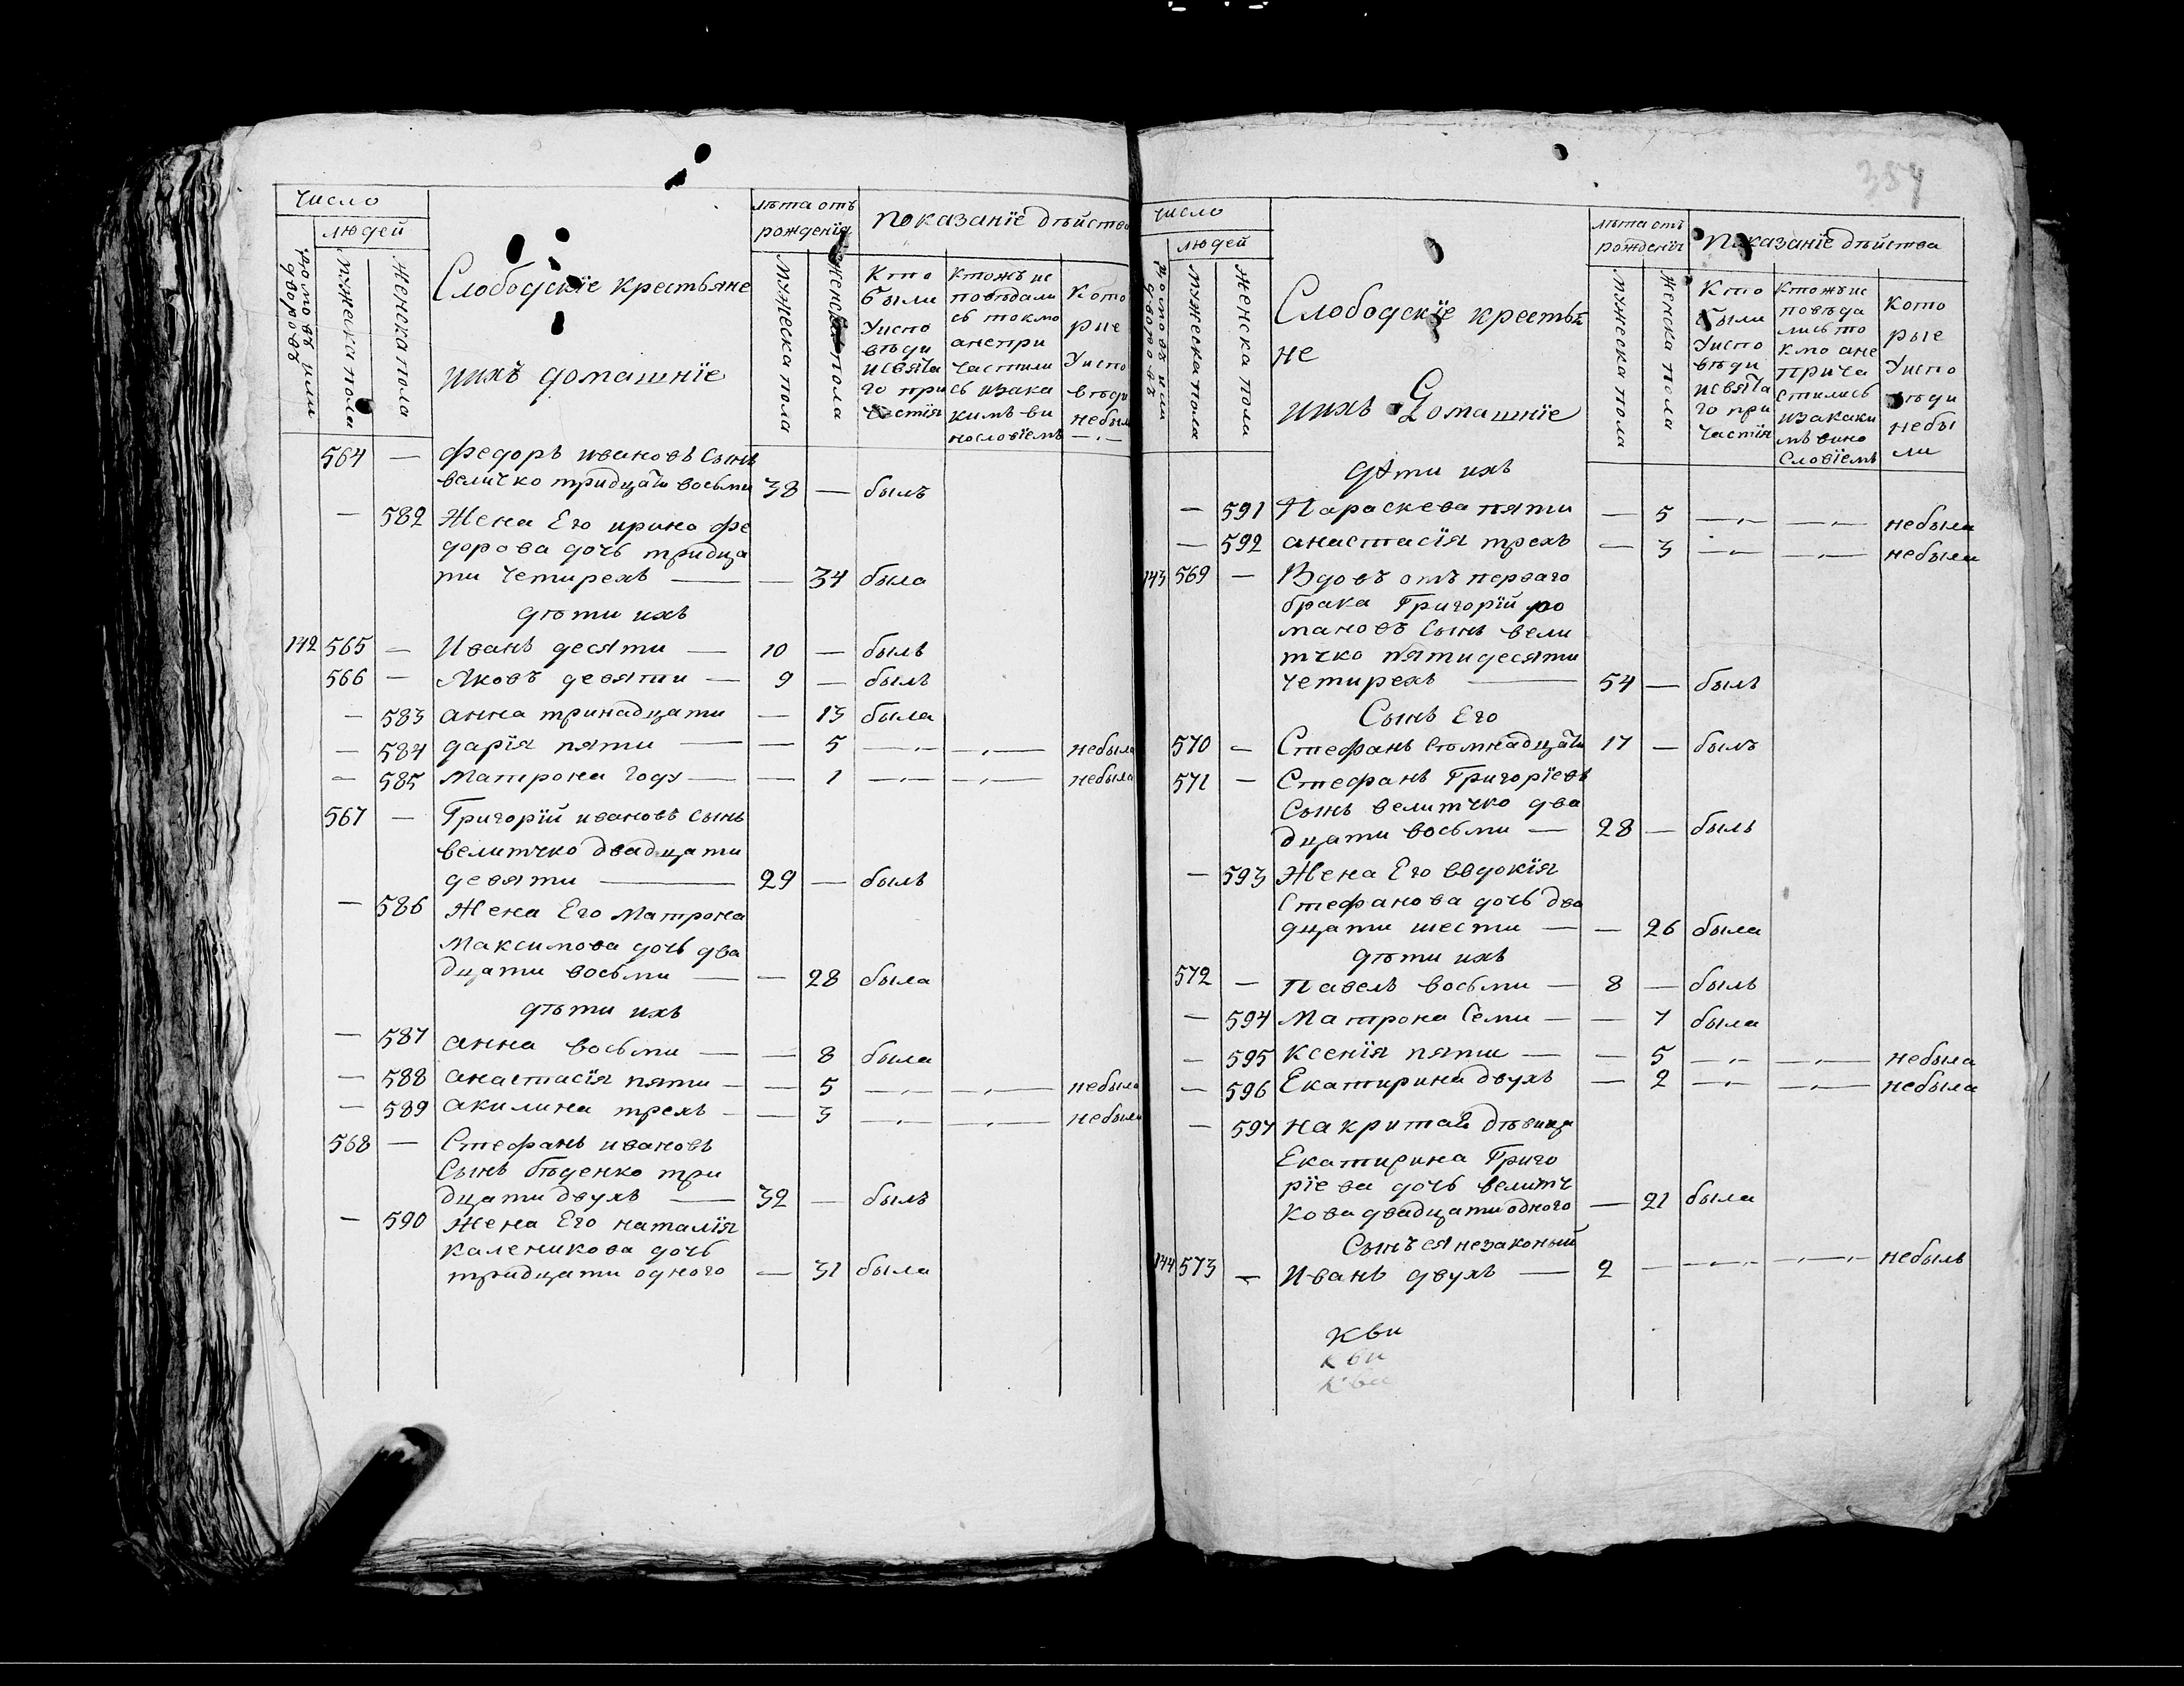 Число
людей
домовъ или дворовъ
мужеска пола
женска пола
Слободскіе крестьяне
иихъ домашніе
лѣта отъ
рожденія
мужеска пола
женска пола
показаніе дѣйства
Кто
были
Уиспо
вѣди
исвята
го при
частія
Ктожъ ис
повѣдали
сь токмо
анепри
частили
сь изака
кимъ ви
нословіемъ
Кото
рые
Уиспо
вѣди
небыли
564 — федоръ ивановъ Сынъ
величко тридцати восьми 38 — былъ
— 582 Жена Его ирина фе
дорова дочь тридца
ти Четирехъ — — 34 была
дѣти ихъ
142 565 — Иванъ десяти — 10 — былъ
566 — Яковъ девяти — 9 — былъ
— 583 анна тринадцати — 13 была
— 584 дарія пяти — — 5 — — небыла
— 585 Матрона Году — — 1 — — небыла
567 — Григорій ивановъ Сынъ
велитчко двадцати
девяти — 29 — былъ
— 586 Жена Его Матрона
Максимова дочь два
дцати восьми — — 28 была
дѣти ихъ
— 587 анна восьми — — 8 была
— 588 анастасія пяти — — 5 — — небыла
— 589 акилина трехъ — — 3 — — небыла
568 — Стефанъ ивановъ
Сынъ бѣденко три
дцати двухъ — 32 — былъ
— 590 Жена Его наталія
каленикова дочь
тридцати одного — 31 была
354
число
людей
домовъ или дворовъ
мужеска пола
женска пола
Слободскіе крестья
не
иихъ Домашніе
лѣта отъ
рожденія
мужеска пола
женска пола
Показаніе дѣйства
Кто
были
Уиспо
вѣди
исвята
го при
частія
Ктожъ ис
повѣда
лись то
кмо ане
прича
стились
изакаки
мъ вино
Словіемъ
Кото
рые
Уиспо
вѣди
небы
ли
дѣти ихъ
— 591 Параскева пяти — 5 — — небыла
— 592 анастасія трехъ — 3 — — небыла
143 569 — Вдовъ отъ перваго
брака Григорій ро
мановъ Сынъ вели
тчко пятидесяти
Четирехъ — 54 — былъ
Сынъ Его
570 — Стефанъ Семнадцати 17 — былъ
571 — Стефанъ Григоріевъ
Сынъ велитчко два
дцати восьми — 28 — былъ
— 593 Жена Его евдокія
Стефанова дочь два
дцати шести — — 26 была
дѣти ихъ
572 — Павелъ восьми — 8 — былъ
— 594 Матрона Семи — — 7 была
— 595 Ксенія пяти — — 5 — — небыла
— 596 Екатирина двухъ — 2 — — небыла
— 597 накритая дѣвица
Екатирина Григо
ріева дочь велитч
кова двадцати одного — 21 была
Сынъ ея незаконый
144 573 — Иванъ двухъ — 2 — — — небылъ
Кви
кви
кви